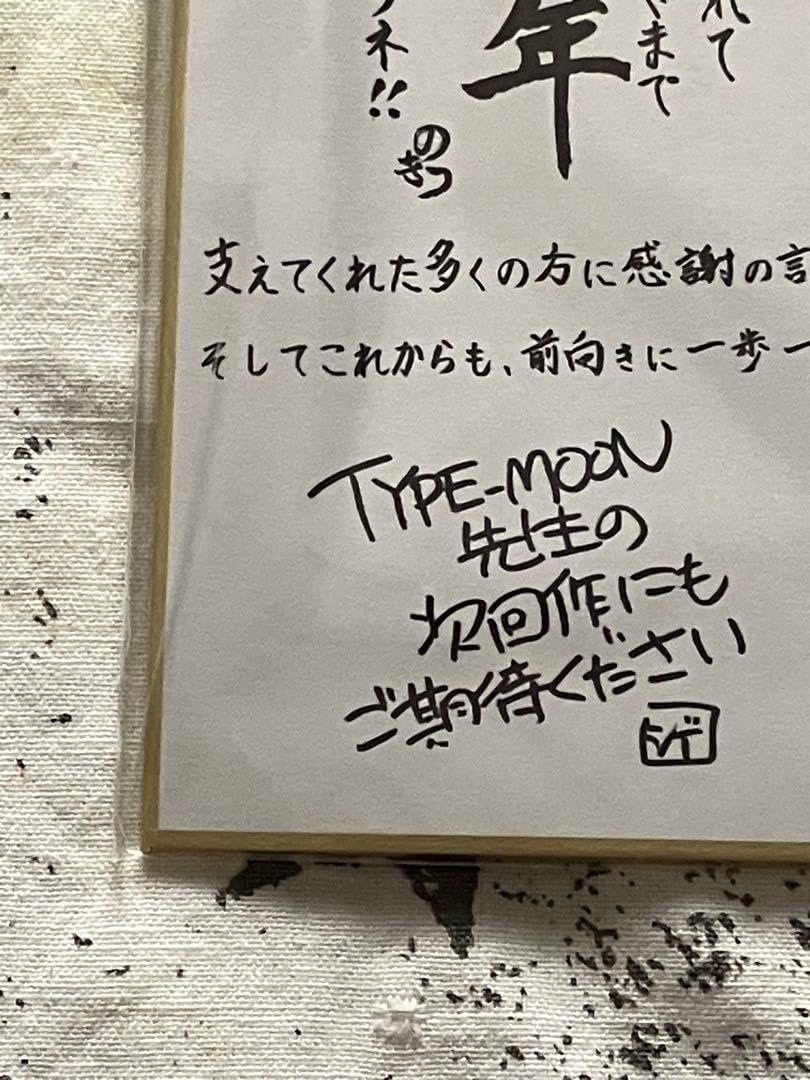 れて
まで
年
ネ!!
のきつ
支えてくれた多くの方に感謝の言
そしてこれからも、前向きに一歩一
TYPE-MOON
先生の
次回作にも
ご期待ください
シゲ